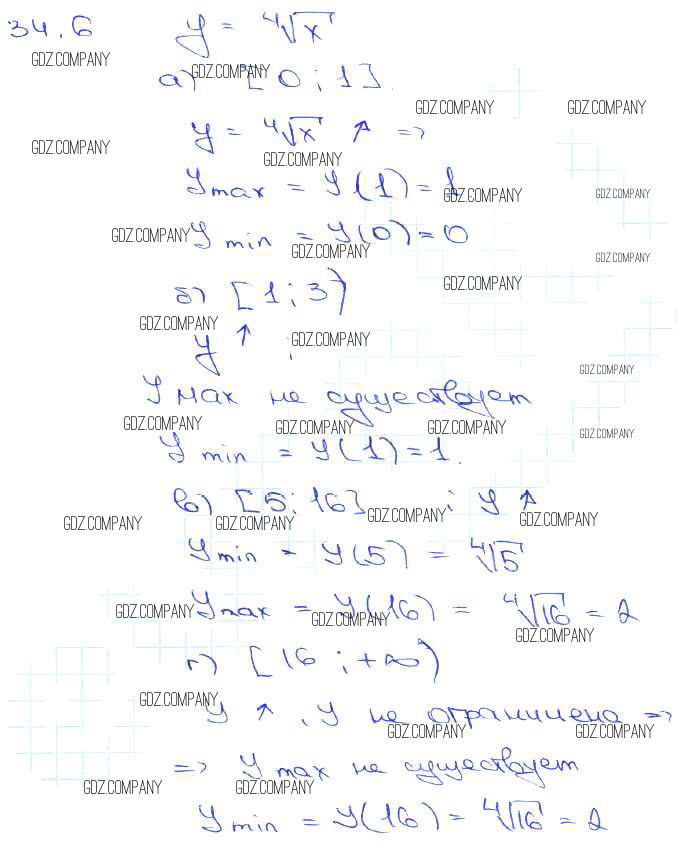 34.6 y = ⁴√x
GDZ.COMPANY GDZ.COMPANY
а) [0 ; 1].
GDZ.COMPANY GDZ.COMPANY
GDZ.COMPANY
y = ⁴√x ↑ =>
GDZ.COMPANY
y max = y(1) = 1
GDZ.COMPANY GDZ.COMPANY
GDZ.COMPANY y min = y(0) = 0
GDZ.COMPANY GDZ.COMPANY
GDZ.COMPANY
б) [1 ; 3)
GDZ.COMPANY
y ↑ ; GDZ.COMPANY
GDZ.COMPANY
y мах не существует
GDZ.COMPANY GDZ.COMPANY GDZ.COMPANY GDZ.COMPANY
y min = y(1) = 1.
в) [5 ; 16] ; y ↑
GDZ.COMPANY GDZ.COMPANY GDZ.COMPANY GDZ.COMPANY
y min = y(5) = ⁴√5
GDZ.COMPANY y max = y(16) = ⁴√16 = 2
GDZ.COMPANY GDZ.COMPANY
г) [16 ; +∞)
GDZ.COMPANY
y ↑, y не ограничена =>
GDZ.COMPANY GDZ.COMPANY
=> y max не существует
GDZ.COMPANY GDZ.COMPANY
y min = y(16) = ⁴√16 = 2